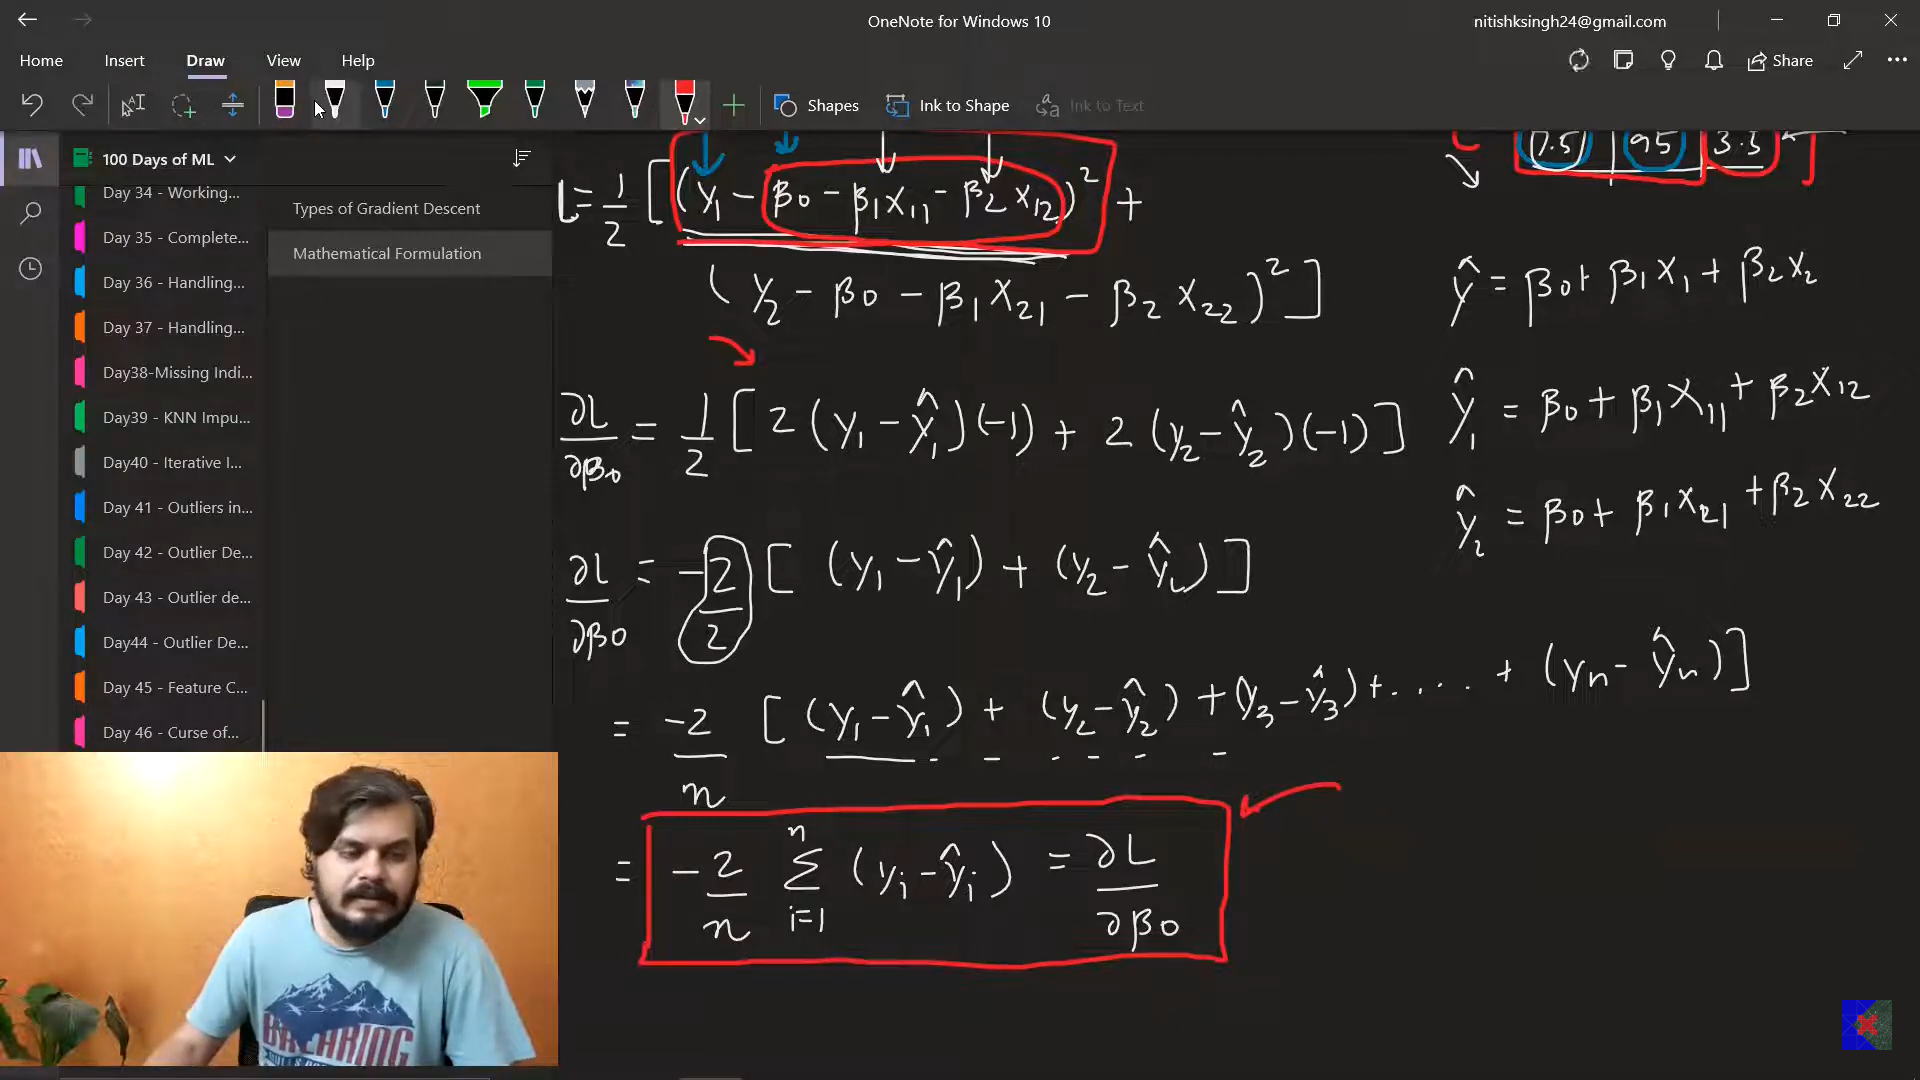 OneNote for Windows 10
nitishksingh24@gmail.com
Home Insert Draw View Help
Share
Shapes Ink to Shape Ink to Text
100 Days of ML
Day 34 - Working...
Day 35 - Complete...
Day 36 - Handling...
Day 37 - Handling...
Day38-Missing Indi...
Day39 - KNN Impu...
Day40 - Iterative I...
Day 41 - Outliers in...
Day 42 - Outlier De...
Day 43 - Outlier de...
Day44 - Outlier De...
Day 45 - Feature C...
Day 46 - Curse of...
Types of Gradient Descent
Mathematical Formulation
7.5 | 95 | 3.3
L = 1/2 [(y₁ - β₀ - β₁x₁₁ - β₂x₁₂)² +
(y₂ - β₀ - β₁x₂₁ - β₂x₂₂)²]
∂L/∂β₀ = 1/2 [2(y₁ - ŷ₁)(-1) + 2(y₂ - ŷ₂)(-1)]
∂L/∂β₀ = -2/2 [(y₁ - ŷ₁) + (y₂ - ŷ₂)]
= -2/n [(y₁ - ŷ₁) + (y₂ - ŷ₂) + (y₃ - ŷ₃) + .... + (yₙ - ŷₙ)]
= -2/n Σⁿᵢ₌₁ (yᵢ - ŷᵢ) = ∂L/∂β₀
ŷ = β₀ + β₁x₁ + β₂x₂
ŷ₁ = β₀ + β₁x₁₁ + β₂x₁₂
ŷ₂ = β₀ + β₁x₂₁ + β₂x₂₂